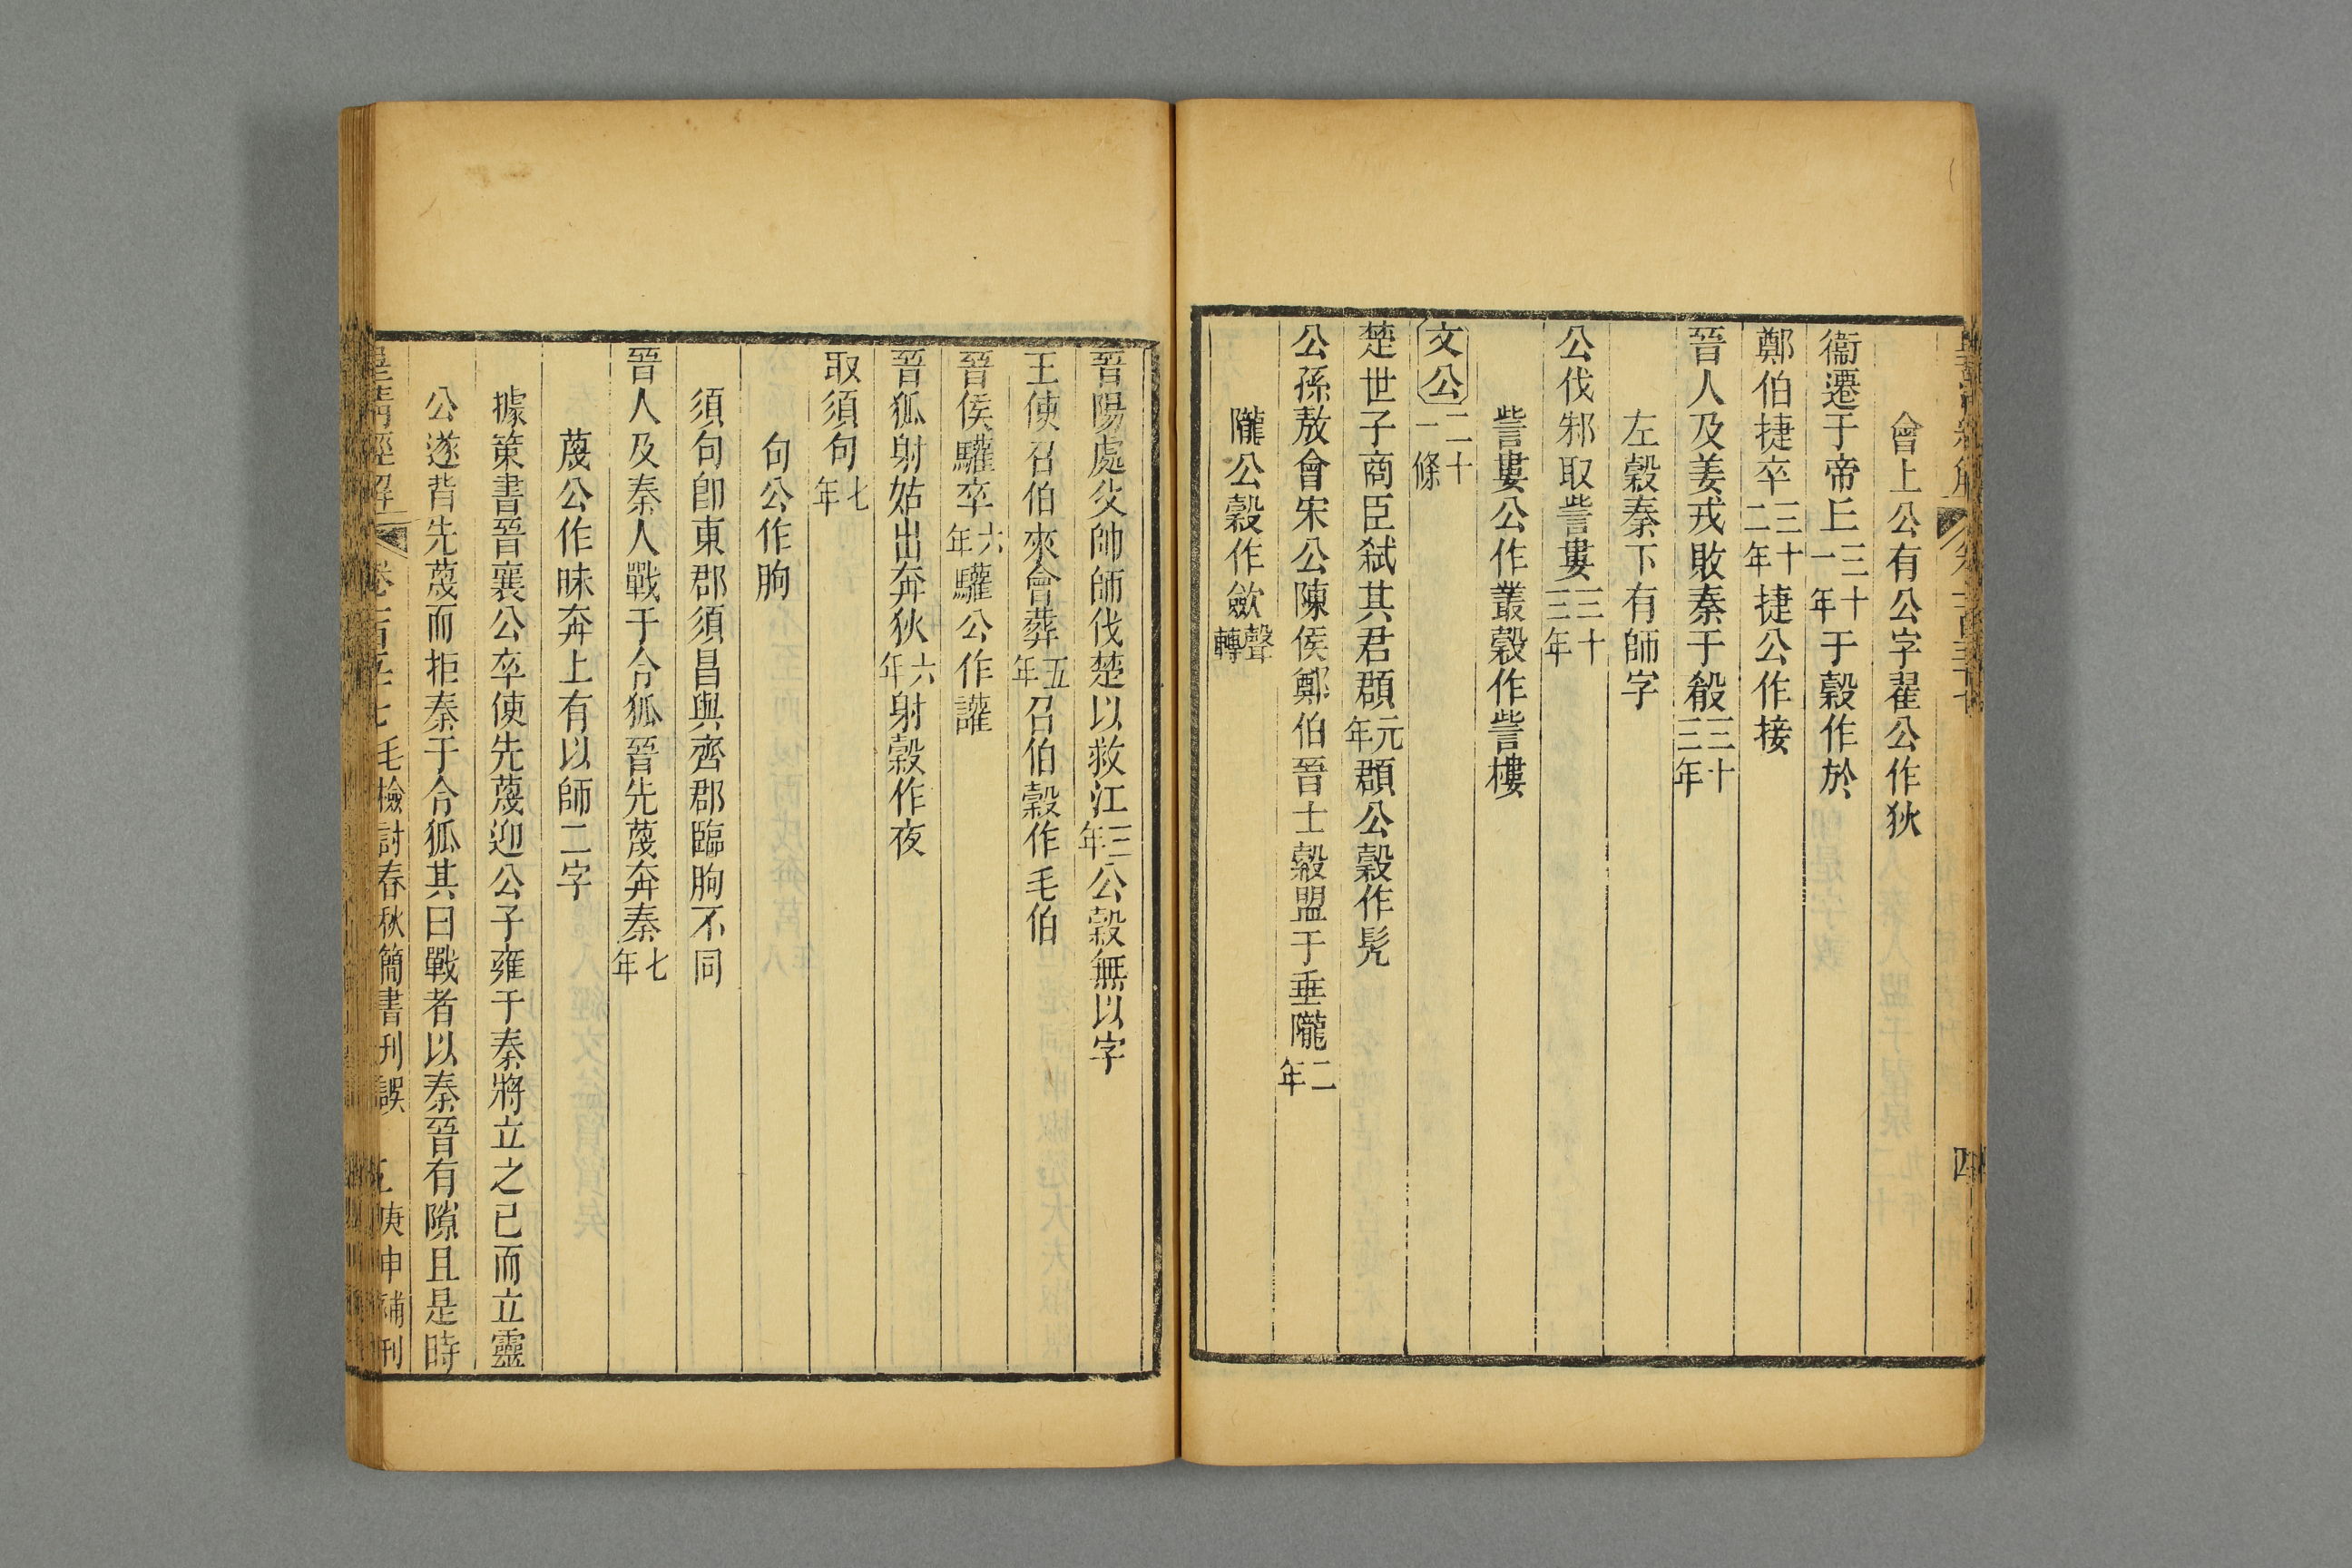 會上公有公字翟公作狄
衞遷于帝丘三十一年于穀作於
鄭伯捷卒三十二年捷公作接
晉人及姜戎敗秦于殽三十三年
左穀秦下有師字
公伐邾取訾婁三十三年
訾婁公作叢穀作訾樓
文公二十一條
楚世子商臣弑其君頵元年頵公穀作髡
公孫敖會宋公陳侯鄭伯晉士縠盟于垂隴二年
隴公穀作歛聲轉
晉陽處父帥師伐楚以救江三年公穀無以字
王使召伯來會葬五年召伯穀作毛伯
晉侯驩卒六年驩公作讙
晉狐射姑出奔狄六年射穀作夜
取須句七年
句公作朐
須句卽東郡須昌與齊郡臨朐不同
晉人及秦人戰于令狐晉先蔑奔秦七年
蔑公作昧奔上有以師二字
據策書晉襄公卒使先蔑迎公子雍于秦將立之已而立靈
公遂背先蔑而拒秦于令狐其曰戰者以秦晉有隙且是時
皇清經解 卷一百五十七 毛檢討春秋簡書刊誤 五 庚申補刊